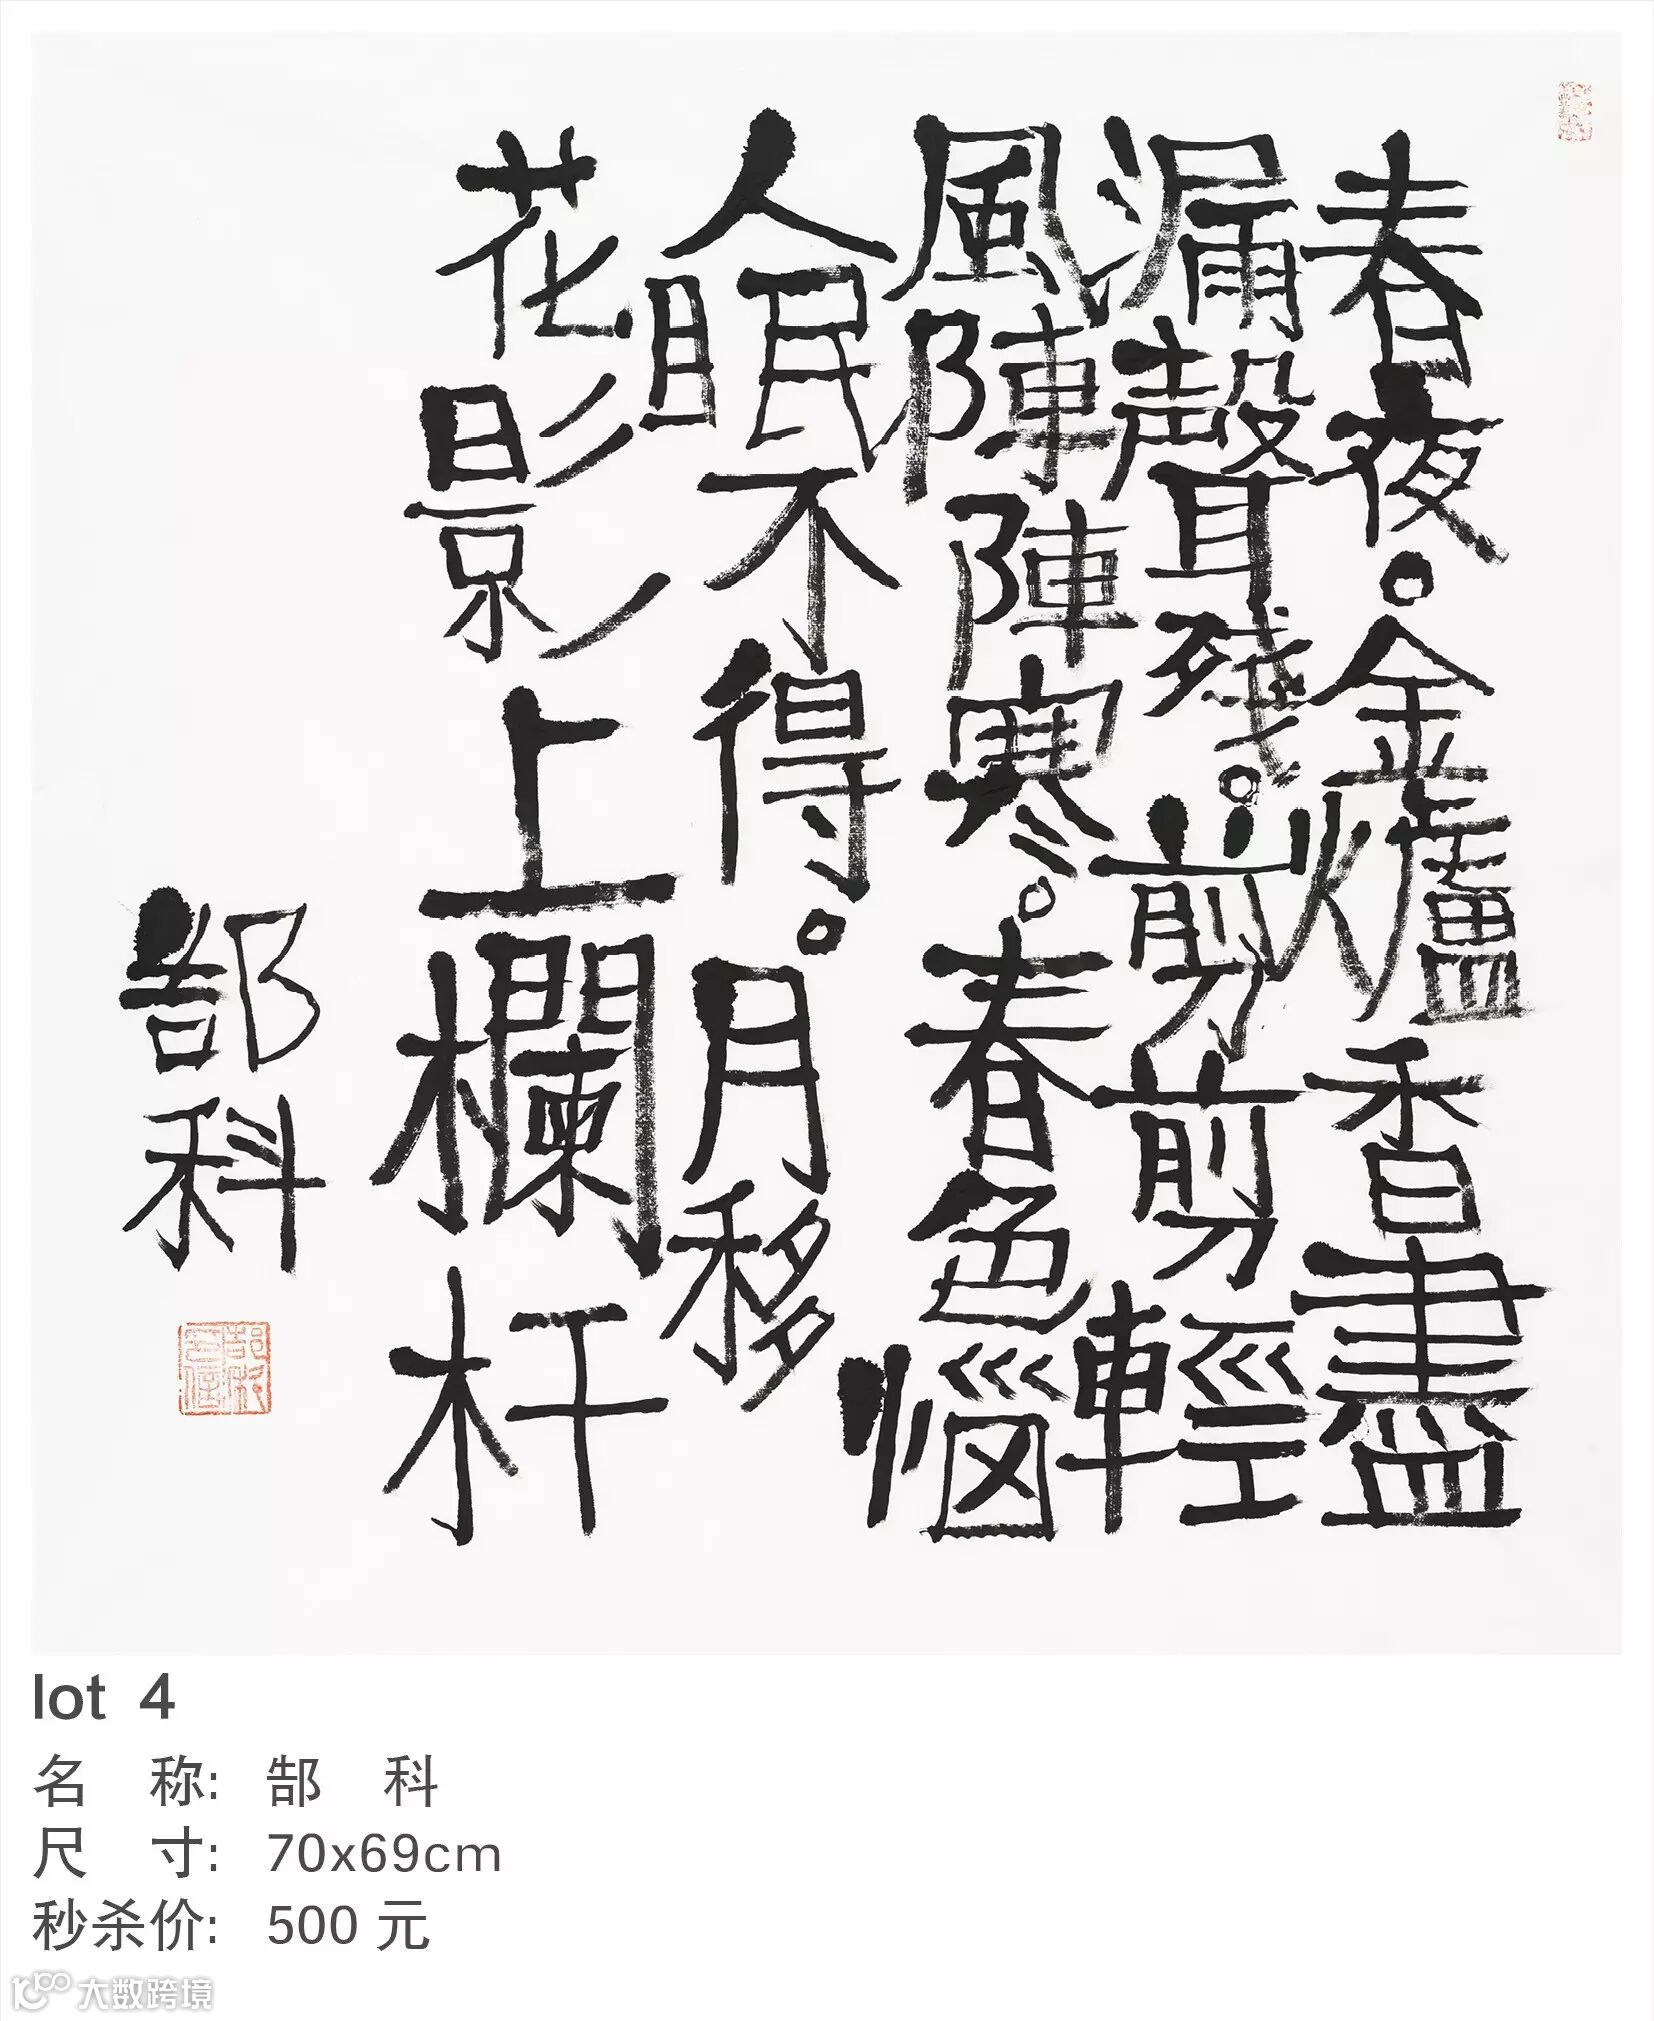 春夜。金爐香盡
漏聲殘。剪剪輕
風陣陣寒。春色惱
人眠不得。月移
花影上欄杆
郜科
lot 4
名 称: 郜 科
尺 寸: 70x69cm
秒杀价: 500 元
大数跨境